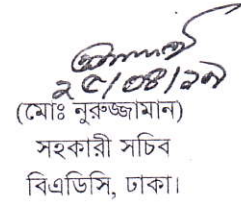 ২৫/০৪/২১
(মোঃ নুরুজ্জামান)
সহকারী সচিব
বিএডিসি, ঢাকা।